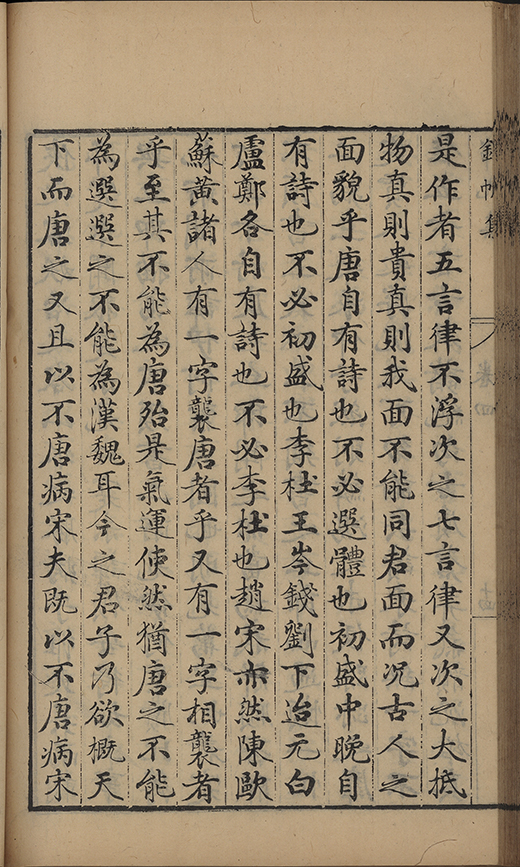 錦帆集
卷四
是作者五言律不浮次之七言律又次之大抵
物真則貴真則我面不能同君面而况古人之
面貌乎唐自有詩也不必選體也初盛中晚自
有詩也不必初盛也李杜王岑錢劉下迨元白
盧鄭各自有詩也不必李杜也趙宋亦然陳歐
蘇黃諸人有一字襲唐者乎又有一字相襲者
乎至其不能為唐殆是氣運使然猶唐之不能
為選選之不能為漢魏耳今之君子乃欲概天
下而唐之又且以不唐病宋夫既以不唐病宋